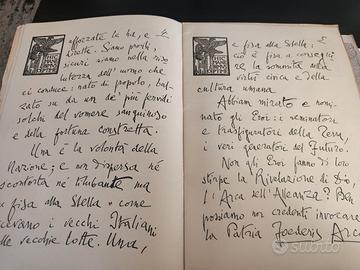 afforzate la ba, e
dirette. Siamo pronti,
sicuri siamo nella riso
lutezza dell'uomo che
ci conduce: nato di popolo, bal
zato su da un de' più fervidi
solchi del vomere sanguinoso
e della fortuna constretta.
Una è la volontà della
Nazione; e non dispersa né
contorta né titubante ma
fisa alla Stella: come
dicevano i vecchi Italiani
delle vecchie lotte. Una,
HIC MANEBIMUS OPTIME
e fisa alla Stella: e
ciò è fisa a consegui
re la sommità della
virtù civica e della
cultura umana.
Abbiam mirato e nomi
nato gli Eroi: i seminatori
e trasfiguratori della Terra,
i veri generatori del Futuro.
Non gli Eroi hanno di loro
stirpe la Rivelazione di Dio
l'Arca dell'Alleanza? Ben
possiamo noi credenti invocare
la Patria Foederis Arca
Subito.it